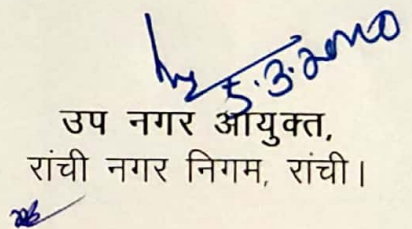 5.3.2020
उप नगर आयुक्त,
रांची नगर निगम, रांची।